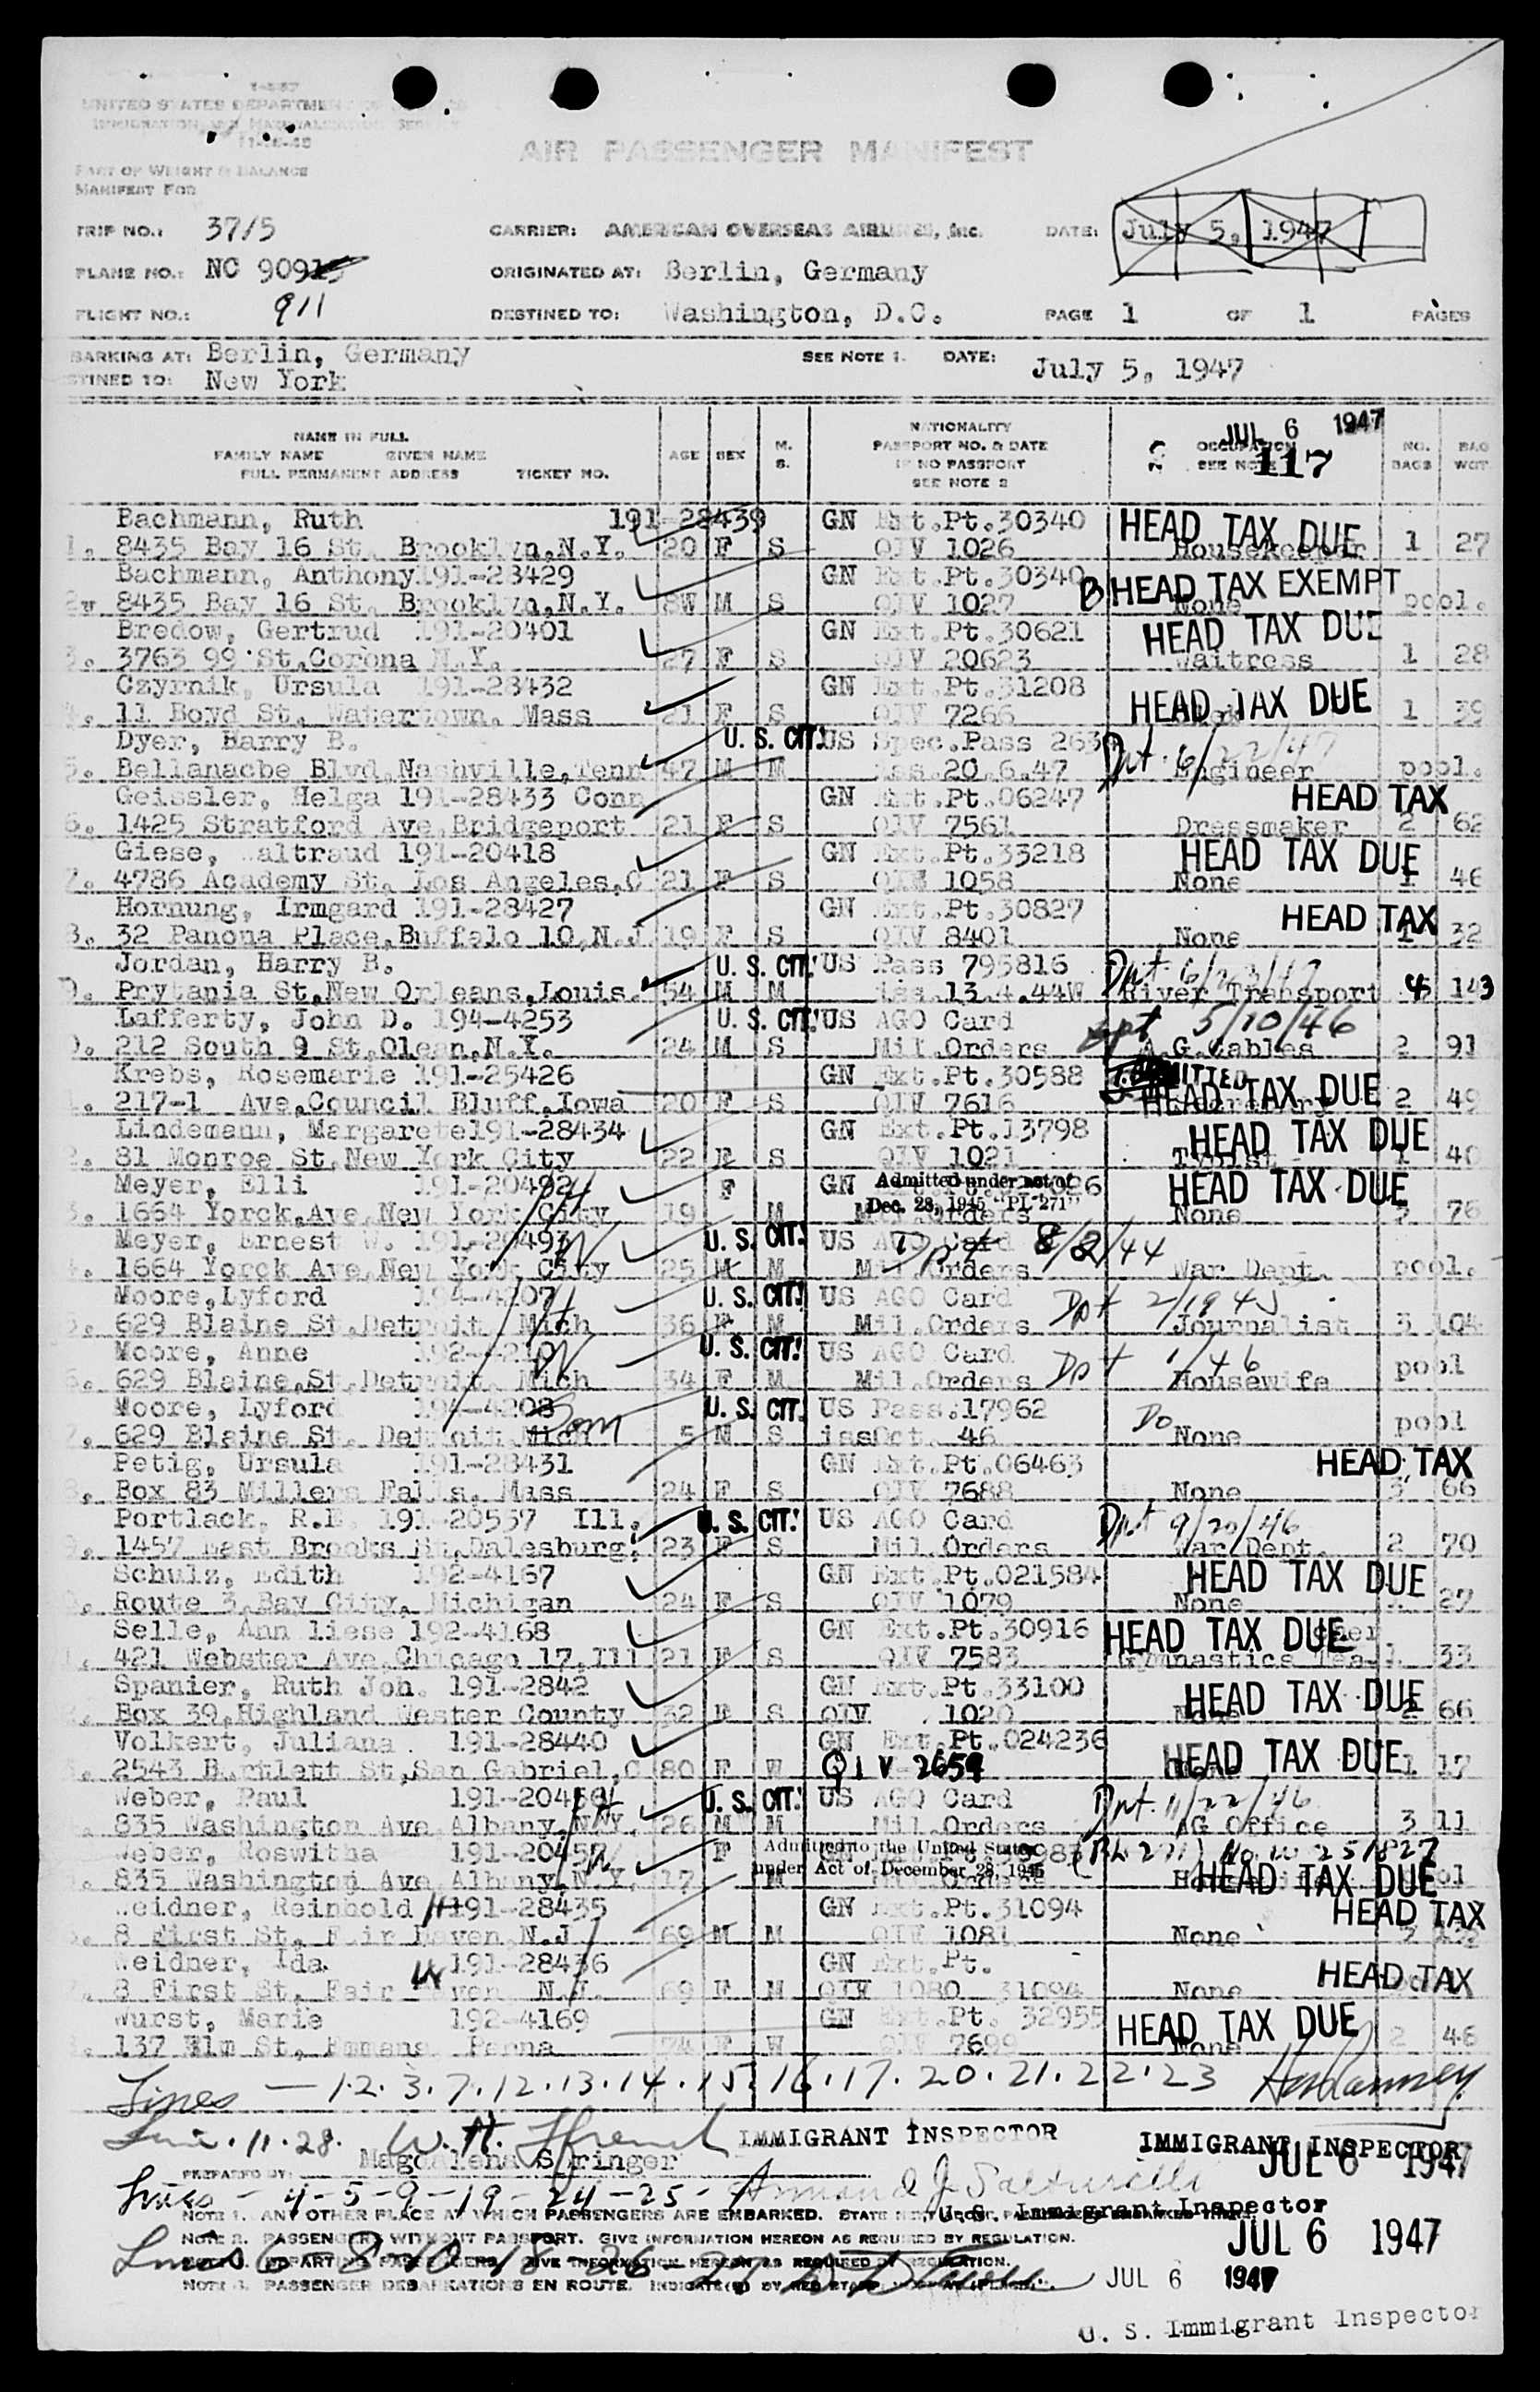 UNITED STATES DEPARTMENT OF
IMMIGRATION AND NATURALIZATION SERVICE
PART OF WEIGHT & BALANCE
MANIFEST FOR
AIR PASSENGER MANIFEST
TRIP NO.: 37/5 CARRIER: AMERICAN OVERSEAS AIRLINES, Inc. DATE: July 5, 1947
PLANE NO.: NC 909 ORIGINATED AT: Berlin, Germany
FLIGHT NO.: 911 DESTINED TO: Washington, D.C. PAGE 1 OF 1 PAGES
BARKING AT: Berlin, Germany SEE NOTE 1. DATE: July 5, 1947
STINED TO: New York
JUL 6 1947
NAME IN FULL NATIONALITY
FAMILY NAME GIVEN NAME AGE SEX M. S. PASSPORT NO. & DATE OCCUPATION NO. BAGS BAG WGT
FULL PERMANENT ADDRESS TICKET NO. IF NO PASSPORT SEE NOTE 117
SEE NOTE 2
Bachmann, Ruth 191-28439 GN Ext.Pt.30340 HEAD TAX DUE
1. 8435 Bay 16 St. Brooklyn,N.Y. 20 F S QIV 1026 Housekeeper 1 27
Bachmann, Anthony 191-28429 GN Ext.Pt.30340 HEAD TAX EXEMPT
2. 8435 Bay 16 St. Brooklyn,N.Y. 8W M S QIV 1027 None pool.
Bredow, Gertrud 191-20401 GN Ext.Pt.30621 HEAD TAX DUE
3. 3763 99 St.Corona N.Y. 27 F S QIV 20623 Waitress 1 28
Czyrnik, Ursula 191-28432 GN Ext.Pt.31208 HEAD TAX DUE
4. 11 Boyd St. Watertown. Mass 21 F S QIV 7266 1 39
Dyer, Harry B. U. S. CIT. US Spec.Pass 263
5. Bellanacbe Blvd.Nashville,Tenn 47 M M iss.20.6.47 Dpt. 6/22/47 Engineer pool.
Geissler, Helga 191-28433 Conn GN Ext.Pt.06247 HEAD TAX
6. 1425 Stratford Ave.Bridgeport 21 F S QIV 7561 Dressmaker 2 62
Giese, Waltraud 191-20418 GN Ext.Pt.33218 HEAD TAX DUE
7. 4786 Academy St. Los Angeles,C 21 F S QIV 1058 None 1 46
Hornung, Irmgard 191-28427 GN Ext.Pt.30827 HEAD TAX
8. 32 Panona Place,Buffalo 10,N.J 19 F S QIV 8401 None 1 32
Jordan, Harry B. U. S. CIT. US Pass 795816
9. Prytania St.New Orleans,Louis. 54 M M iss.13.4.44W River Transport 143
Lafferty, John D. 194-4253 U. S. CIT. US AGO Card Dpt 5/10/46
0. 212 South 9 St.Olean,N.Y. 24 M S Mil.Orders A.G.Cables 2 91
Krebs, Rosemarie 191-25426 GN Ext.Pt.30588 HEAD TAX DUE
1. 217-1 Ave.Council Bluff.Iowa 20 F S QIV 7616 2 49
Lindemann, Margarete191-28434 GN Ext.Pt.13798 HEAD TAX DUE
2. 81 Monroe St.New York City 22 F S QIV 1021 Typist 1 40
Meyer, Elli 191-20492 F GN Admitted under act of Dec. 28, 1945 "PL-271" HEAD TAX DUE
3. 1664 Yorck.Ave.New York City 19 M Mil.Orders None 76
Meyer, Ernest W. 191-20493 U. S. CIT. US AGO Card Dpt 8/2/44
4. 1664 Yorck Ave.New York City 25 M M Mil.Orders War Dept. pool.
Moore,Lyford 194-4207 U. S. CIT. US AGO Card Dpt 2/1945
5. 629 Blaine St.Detroit Mich 36 M Mil.Orders Journalist 104
Moore, Anne 192-4210 U. S. CIT. US AGO Card Dpt 1/46
6. 629 Blaine,St.Detroit. Mich 34 F M Mil.Orders Housewife pool
Moore, Lyford 194-4208 Son U. S. CIT. US Pass.17962 Do pool
7. 629 Blaine St. Detroit.Mich 5 M S issOct. 46 None
Petig, Ursula 191-28431 GN Ext.Pt.06463 HEAD TAX
8. Box 83 Millers Falls, Mass 24 F S QIV 7688 None 66
Portlack, R.E. 191-20557 Ill. U. S. CIT. US AGO Card Dpt 9/20/46
9. 1457 East Brooks St.Dalesburg. 23 F S Mil.Orders War Dept. 2 70
Schulz, Edith 192-4167 GN Ext.Pt.021584 HEAD TAX DUE
Route 3,Bay City, Michigan 24 F S QIV 1079 None 27
Selle, Ann liese 192-4168 GN Ext.Pt.30916 HEAD TAX DUE
1. 421 Webster Ave.Chicago 17,Ill 21 F S QIV 7583 Gymnastics Tea- cher 33
Spanier, Ruth Joh. 191-2842 GN Ext.Pt.33100 HEAD TAX DUE
2. Box 39,Highland Wester County 32 F S QIV 1020 None 2 66
Volkert, Juliana 191-28440 GN Ext.Pt.024236 HEAD TAX DUE
2543 Bartlett St,San Gabriel,C 80 F W QIV 2659 1 17
Weber, Paul 191-20456 U. S. CIT. US AGO Card Dpt. 11/22/46
835 Washington Ave Albany,N.Y. 26 M M Mil.Orders AG Office 3 11
Weber, Roswitha 191-20457 F Admitted to the United States under Act of December 28, 1945 (PL 271)
835 Washington Ave Albany,N.Y. 17 M Mil.Orders HEAD TAX DUE
Weidner, Reinhold 191-28435 GN Ext.Pt.31094 HEAD TAX
8 First St. Fair Haven N.J 69 M M QIV 1081 None
Weidner, Ida 191-28436 GN Ext.Pt.
8 First St. Fair Haven N.J. 69 F M QIV 1080 31094 None HEAD TAX
Wurst, Marie 192-4169 GN Ext.Pt. 32955 HEAD TAX DUE
137 Elm St, Emmans Penna 74 F W QIV 7699 None 2 46
Lines — 1.2.3.7.12.13.14.15.16.17.20.21.22.23
Line.11.28. W. H. French IMMIGRANT INSPECTOR IMMIGRANT INSPECTOR
PREPARED BY: Magdalena Springer JUL 6 1947
Lines - 4-5-9-19-24-25-
NOTE 1. ANY OTHER PLACE AT WHICH PASSENGERS ARE EMBARKED. U. S. Immigrant Inspector
NOTE 2. PASSENGER WITHOUT PASSPORT. GIVE INFORMATION HEREON AS REQUIRED BY REGULATION. JUL 6 1947
Lines 6-8-10-18-26-27
DEPARTING PASSENGERS GIVE INFORMATION HEREON AS REQUIRED BY REGULATION.
NOTE 3. PASSENGER DEBARKATIONS EN ROUTE. JUL 6 1947
U. S. Immigrant Inspector